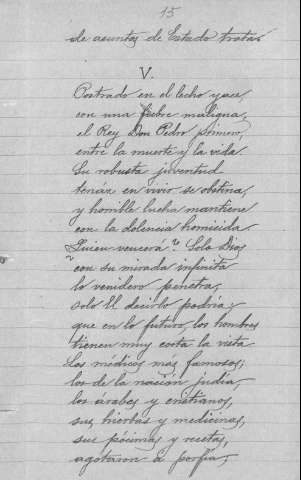 15
de asuntos de Estado tratar.
V.
Postrado en el lecho yace,
con una fiebre maligna,
el Rey Don Pedro primero,
entre la muerte y la vida.
Su robusta juventud
tenáz en vivir se obstina,
y horrible lucha mantiene
con la dolencia homicida
¿Quien vencerá? Solo Dios
con su mirada infinita
lo venidero penetra,
solo El decirlo podria;
que en lo futuro, los hombres
tienen muy corta la vista
Los médicos más famosos;
los de la nasión judia,
los árabes y cristianos,
sus hierbas y medicinas,
sus pócimas y recetas,
agotaron á porfia;